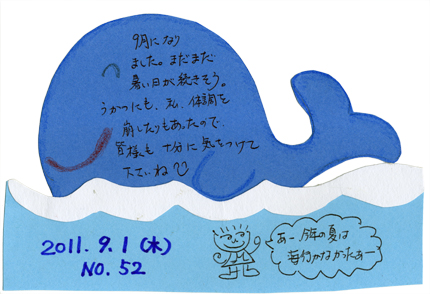 9月になり
ました。まだまだ
暑い日が続きそう。
うかつにも、私、体調を
崩したりもあったので、
皆様も十分に気をつけて
下さいね
2011.9.1(木)
NO.52
あー、今年の夏は
毎行かなかったあー